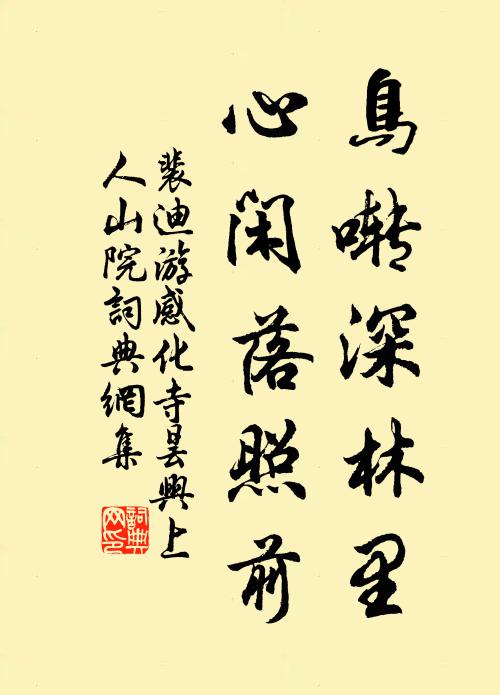 鳥啭深林里
心闲落照前
裴迪游感化寺昙興上
人山院詞典網集
詞典
网印